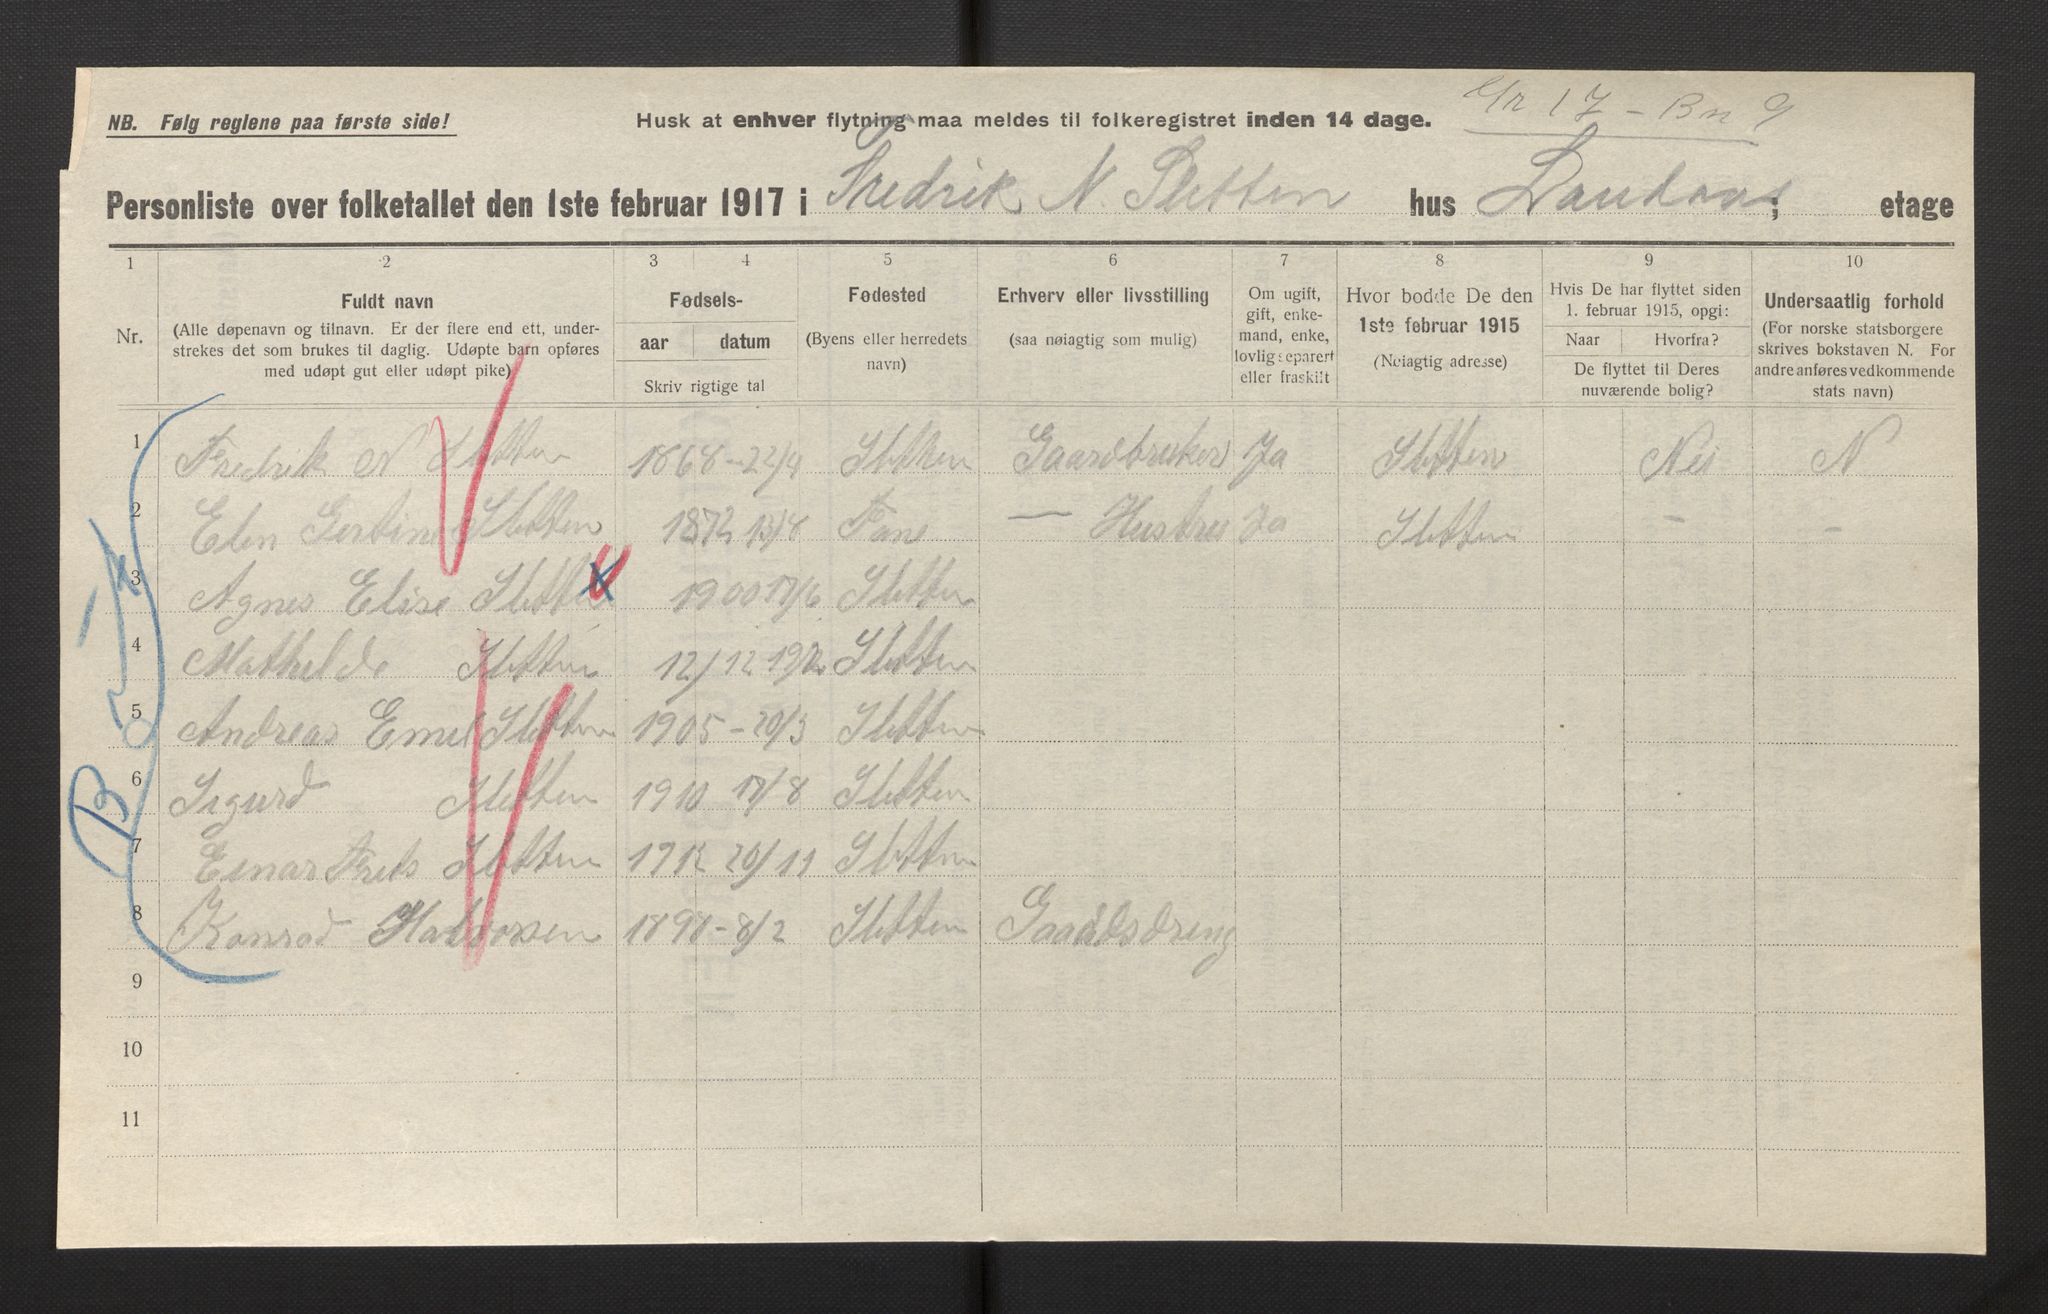 NB. Følg reglene paa første side!
Husk at enhver flytning maa meldes til folkeregistret inden 14 dage.
Gr 17 - Bn 9
Personliste over folketallet den 1ste februar 1917 i Fredrik N. Sletten hus Landaas; etage
1 2 3 4 5 6 7 8 9 10
Nr.
Fuldt navn
(Alle døpenavn og tilnavn. Er der flere end ett, under-
strekes det som brukes til daglig. Udøpte barn opføres
med udøpt gut eller udøpt pike)
Fødsels-
aar datum
Skriv rigtige tal
Fødested
(Byens eller herredets
navn)
Erhverv eller livsstilling
(saa nøiagtig som mulig)
Om ugift,
gift, enke-
mand, enke,
lovlig separert
eller fraskilt
Hvor bodde De den
1ste februar 1915
(Nøiagtig adresse)
Hvis De har flyttet siden
1. februar 1915, opgi:
Naar Hvorfra?
De flyttet til Deres
nuværende bolig?
Undersaatlig forhold
(For norske statsborgere
skrives bokstaven N. For
andre anføres vedkommende
stats navn)
1 Fredrik N Sletten 1868 - 22/4 Sletten Gaardbruker Ja Sletten Nei N
2 Elen Gertine Sletten 1872 13/8 Fane — Hustru Ja Sletten - -
3 Agnes Elise Sletten 1900 17/6 Sletten
4 Mathilde Sletten 12/12 Sletten
5 Andreas Emel Sletten 1905 - 20/3 Sletten
6 Sigurd Sletten 1910 17/8 Sletten
7 Einar Frits Sletten 1912 20/11 Sletten
8 Konrad 1898 - 8/2 Sletten Gaardsdreng
9
10
11